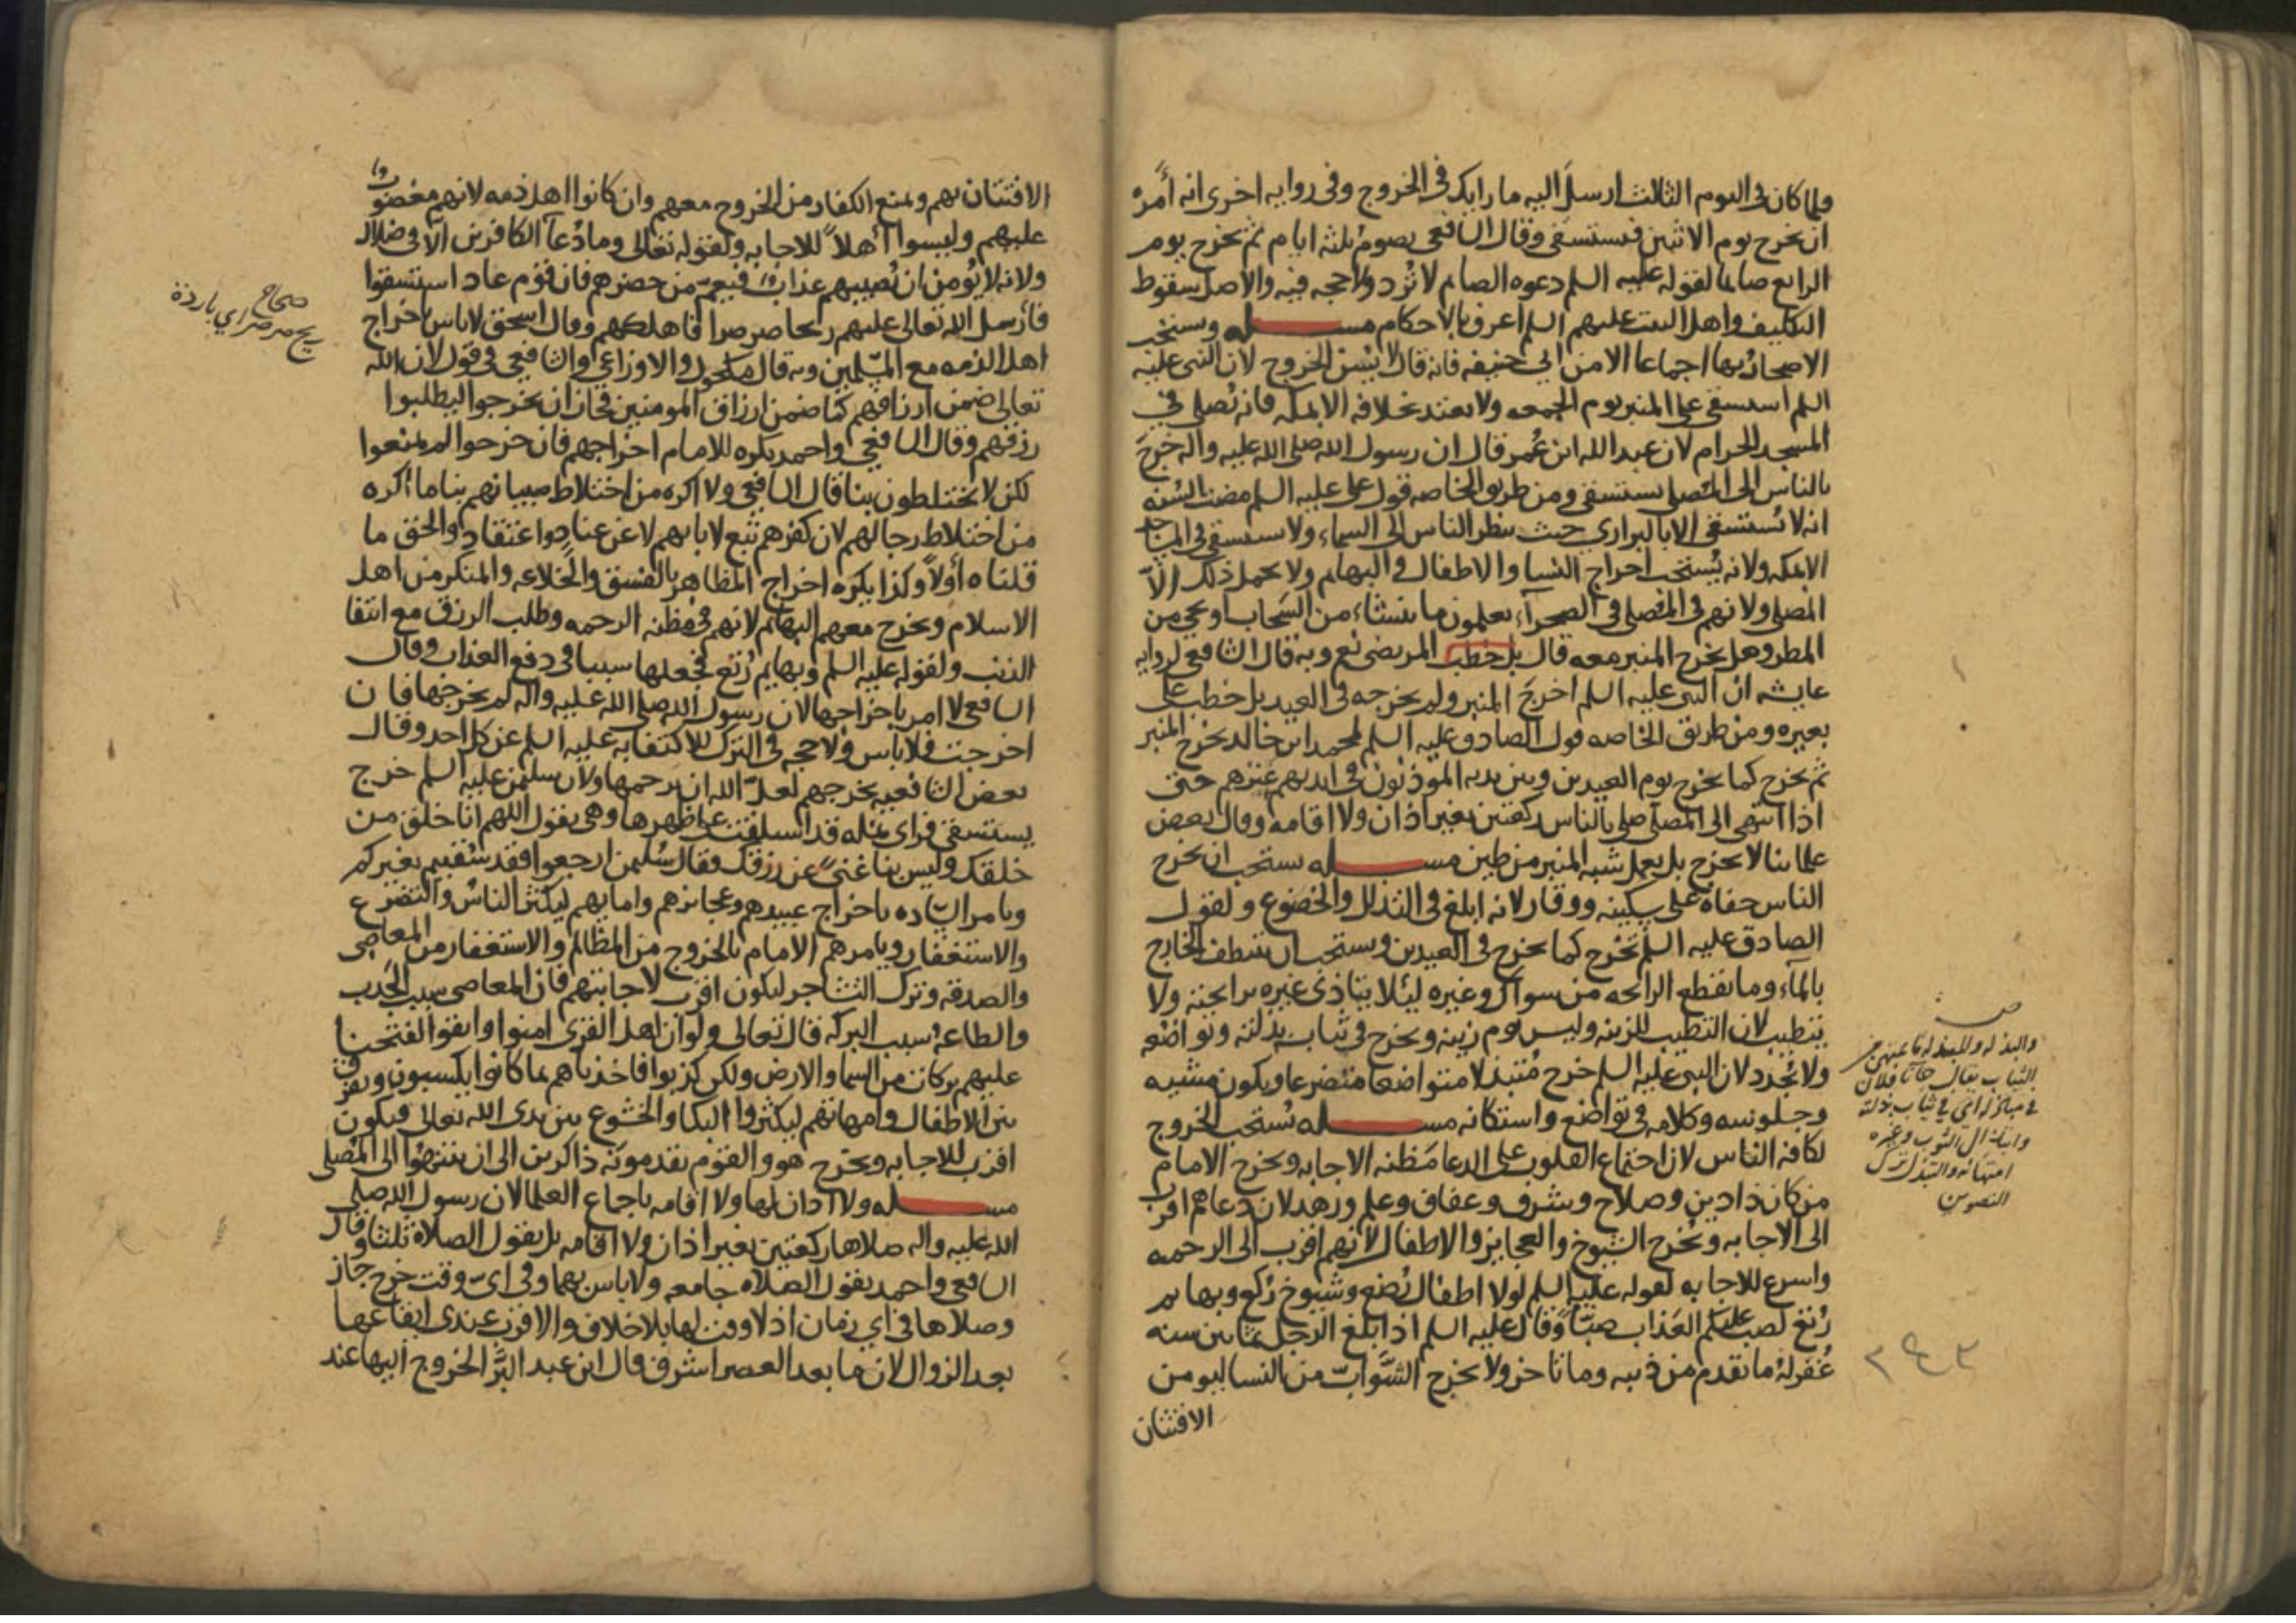 ولما كان في اليوم الثالث ارسل اليه ما رايك في الخروج وفي روايه اخرى انه أمره
ان يخرج يوم الاثنين فيستسقي وقال الشافعي يصوم ثلثه ايام ثم يخرج يوم
الرابع صايما لقوله عليه السلم دعوه الصايم لا تُرد ولا حجه فيه والاصل سقوط
التكليف واهل البيت عليهم السلم اعرف بالاحكام مسـله ويستحب
الاصحار بها اجماعا الا من ابي حنيفه فانه قال لا يُسن الخروج لان النبي عليه
السلم استسقى على المنبر يوم الجمعه ولا يعتد بخلافه الا بمكه فانه يُصلى في
المسجد الحرام لان عبد الله ابن عُمر قال ان رسول الله صلى الله عليه واله خرج
بالناس الى المُصلى يستسقي ومن طريق الخاصه قول علي عليه السلم مضت السُنه
انه لا يُستسقى الا بالبراري حيث ينظر الناس الى السماء ولا يستسقى في المساجد
الا بمكه ولانه يُستحب اخراج النسا والاطفال والبهايم ولا يحمل ذلك الّا
المصلى ولانهم في المُصلى في الصحرآء يعلمون ما ينشاء من السَحاب ويجي من
المطر وهل يخرج المنبر معه قال بل خطب المرتضى نعم وبه قال الشافعي لروايه
عايشه ان النبي عليه السلم اخرج المنبر ولم يخرجه في العيد بل خطب على
بعيره ومن طريق الخاصه قول الصادق عليه السلم لمحمد ابن خالد يخرج المنبر
ثم يخرج كما يخرج يوم العيدين وبين يديه الموذنون في ايديهم عَنَزهم حتى
اذا انتهى الى المصلى صلى بالناس ركعتين بغير اذان ولا اقامه وقال بعض
علمائنا لا يخرج بل يعمل شبه المنبر من طين مسـله يستحب ان يخرج
الناس حفاة على سكينه ووقار لانه ابلغ في التذلل والخضوع ولقول
الصادق عليه السلم تخرج كما يخرج في العيدين ويستحب ان يتنظف الخارج
بالمآء وما يقطع الرايحه من سواك وغيره ليئلا يتاذى غيره برايحته ولا
يتطيب لان التطيب للزينه وليس يوم زينه ويخرج في ثياب بذلته وتواضعه
ولا يُجدد لان النبي عليه السلم خرج مُتبذلا متواضعا متضرعا ويكون مشيه
وجلوسه وكلامه في تواضع واستكانه مسـله يُستحب الخروج
لكافه الناس لان اجتماع القلوب على الدعا مَظنه الاجابه ويخرج الامام
من كان ذا دين وصلاح وشرف وعفاف وعلم وزهد لان دعاهم اقرب
الى الاجابه ويُخرج الشيوخ والعجايز والاطفال لانهم اقرب الى الرحمه
واسرع للاجابه لقوله عليه السلم لولا اطفال رُضع وشيوخ رُكع وبهايم
رُتع لصب عليكم العَذاب صبّاً وقال عليه السلم اذا بلغ الرجل ثمانين سنه
غُفر له ما تقدم من ذنبه وما تاخر ولا يخرج الشوابّ من النسا ليومن
الافتتان
والبذله والمبذله ما يمتهن من
الثياب يقال جآنا فلان
في مباذله اي في ثياب بذلته
وابتذال الثوب وغيره
امتهانه والتبذل ترك
التصون
٢٩٣
الافتتان بهم ويمنع الكفار من الخروج معهم وان كانوا اهل ذمه لانهم مغضوب
عليهم وليسوا أهلاً للاجابه ولقوله تعالى وما دُعآ الكافرين الّا في ضلال
ولانه لا يُومن ان يُصيبهم عذاب فيعمّ من حضرهم فان قوم عاد استسقوا
فأرسل الله تعالى عليهم ريحا صرصرا فاهلكهم وقال اسحق لا باس باخراج
اهل الذمه مع المسلمين وبه قال مكحول والاوزاعي والشافعي في قول لان الله
تعالى ضمن ارزاقهم كما ضمن ارزاق المومنين فجاز ان يخرجوا ليطلبوا
رزقهم وقال الشافعي واحمد يكره للامام اخراجهم فان خرجوا لم يمنعوا
لكن لا يختلطون بنا قال الشافعي ولا اكره من اختلاط صبيانهم بنا ما اكره
من اختلاط رجالهم لان كفرهم تبع لابايهم لا عن عناد واعتقاد والحق ما
قلناه أولاً وكذا يكره اخراج المظاهر بالفسق والخلاعه والمنكر من اهل
الاسلام ويخرج معهم البهايم لانهم في مظنه الرحمه وطلب الرزق مع انتفا
الذنب ولقوله عليه السلم وبهايم رُتع فجعلها سببا في دفع العذاب وقال
الشافعي لا امر باخراجها لان رسول الله صلى الله عليه واله لم يخرجها فان
اخرجت فلا باس ولا حجه في الترك للاكتفا به عليه السلم عن كل احد وقال
بعض الشافعيه يخرجهم لعلّ الله ان يرحمها ولان سليمن عليه السلم خرج
يستسقي فراى نمله قد استلقت على ظهرها وهي تقول اللهم انا خلق من
خلقك وليس بنا غنىً عن رزقك فقال سُليمن ارجعوا فقد سُقيتم بغيركم
ويامر الساده باخراج عبيدهم وعجايزهم وامايهم ليكثر الناس والتضرع
والاستغفار ويامرهم الامام بالخروج من المظالم والاستغفار من المعاصي
والصدقه وترك التشاجر ليكون اقرب لاجابتهم فان المعاصي سبب الجدب
والطاعة سبب البركه قال تعالى ولو ان اهل القرى امنوا واتقوا لفتحنا
عليهم بركات من السما والارض ولكن كذبوا فاخذناهم بما كانوا يكسبون ويفرق
بين الاطفال وامهاتهم ليكثروا البكا والخشوع بين يدي الله تعالى فيكون
اقرب للاجابه ويخرج هو والقوم يقدمونه ذاكرين الى ان ينتهوا الى المُصلى
مسـله ولا اذان لها ولا اقامه باجماع العلما لان رسول الله صلى
الله عليه واله صلاها ركعتين بغير اذان ولا اقامه بل يقول الصلاة ثلثا وقال
الشافعي واحمد يقول الصلاه جامعه ولا باس بهما وفي ايّ وقت خرج جاز
وصلاها في اي زمان اذ لا وقت لها بلا خلاف والاقرب عندي ايقاعها
بعد الزوال لان ما بعد العصر اشرف قال ابن عبد البَرّ الخروج اليها عند
صحاح
ريح صرصر اي باردة